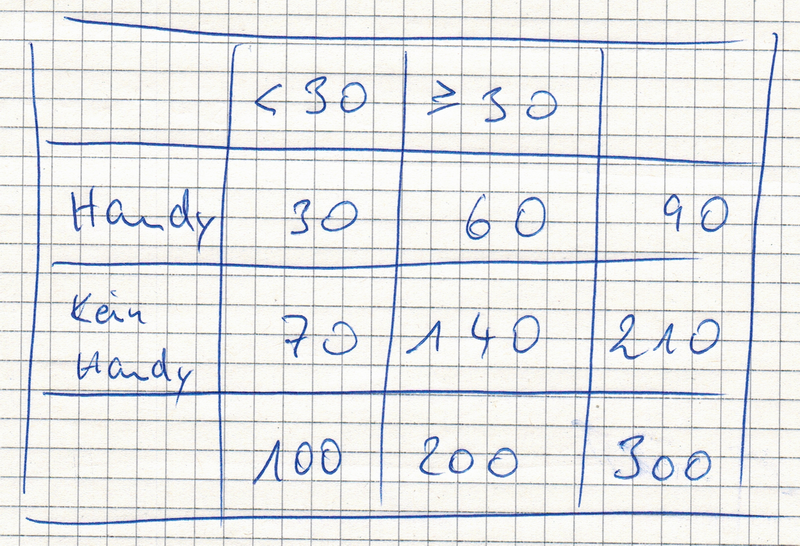 < 30 ≥ 30
Handy 30 60 90
Kein
Handy 70 140 210
100 200 300